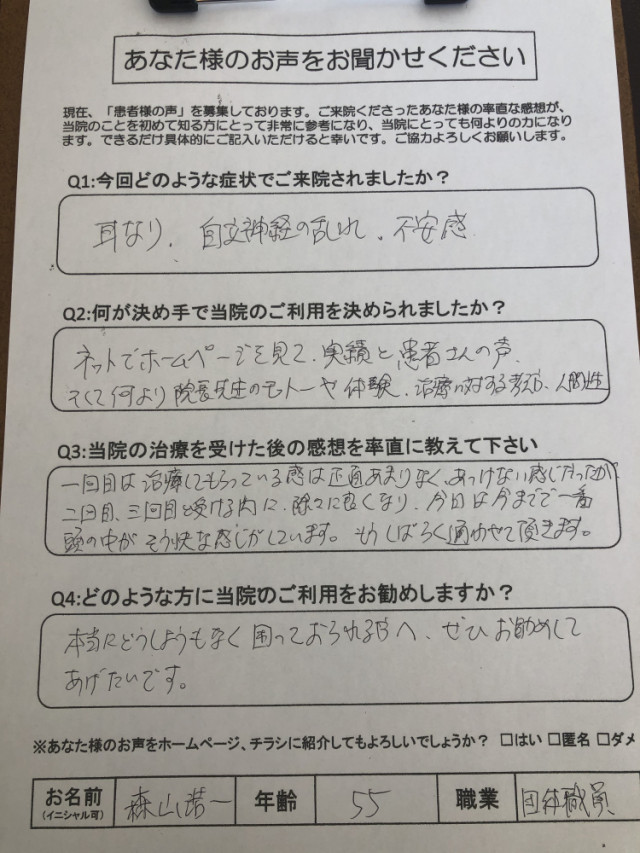 あなた様のお声をお聞かせください
現在、「患者様の声」を募集しております。ご来院くださったあなた様の率直な感想が、
当院のことを初めて知る方にとって非常に参考になり、当院にとっても何よりの力になり
ます。できるだけ具体的にご記入いただけると幸いです。ご協力よろしくお願いします。
Q1:今回どのような症状でご来院されましたか？
耳なり、自立神経の乱れ、不安感
Q2:何が決め手で当院のご利用を決められましたか？
ネットでホームページを見て、実績と患者さんの声、
そして何より院長先生のモトーや体験、治療に対する考え方、人間性
Q3:当院の治療を受けた後の感想を率直に教えて下さい
一回目は治療してもらっている感は正直あまりなく、あっけない感じだったが
二回目、三回目と受ける内に、除々に良くなり、今日は今までで一番
頭の中がそう快な感じがしています。もうしばらく通わせて頂きます。
Q4:どのような方に当院のご利用をお勧めしますか？
本当にどうしようもなく困っておられる方へ、ぜひお勧めして
あげたいです。
※あなた様のお声をホームページ、チラシに紹介してもよろしいでしょうか？ □はい □匿名 □ダメ
お名前 森山 浩一 年齢 55 職業 団体職員
(イニシャル可)